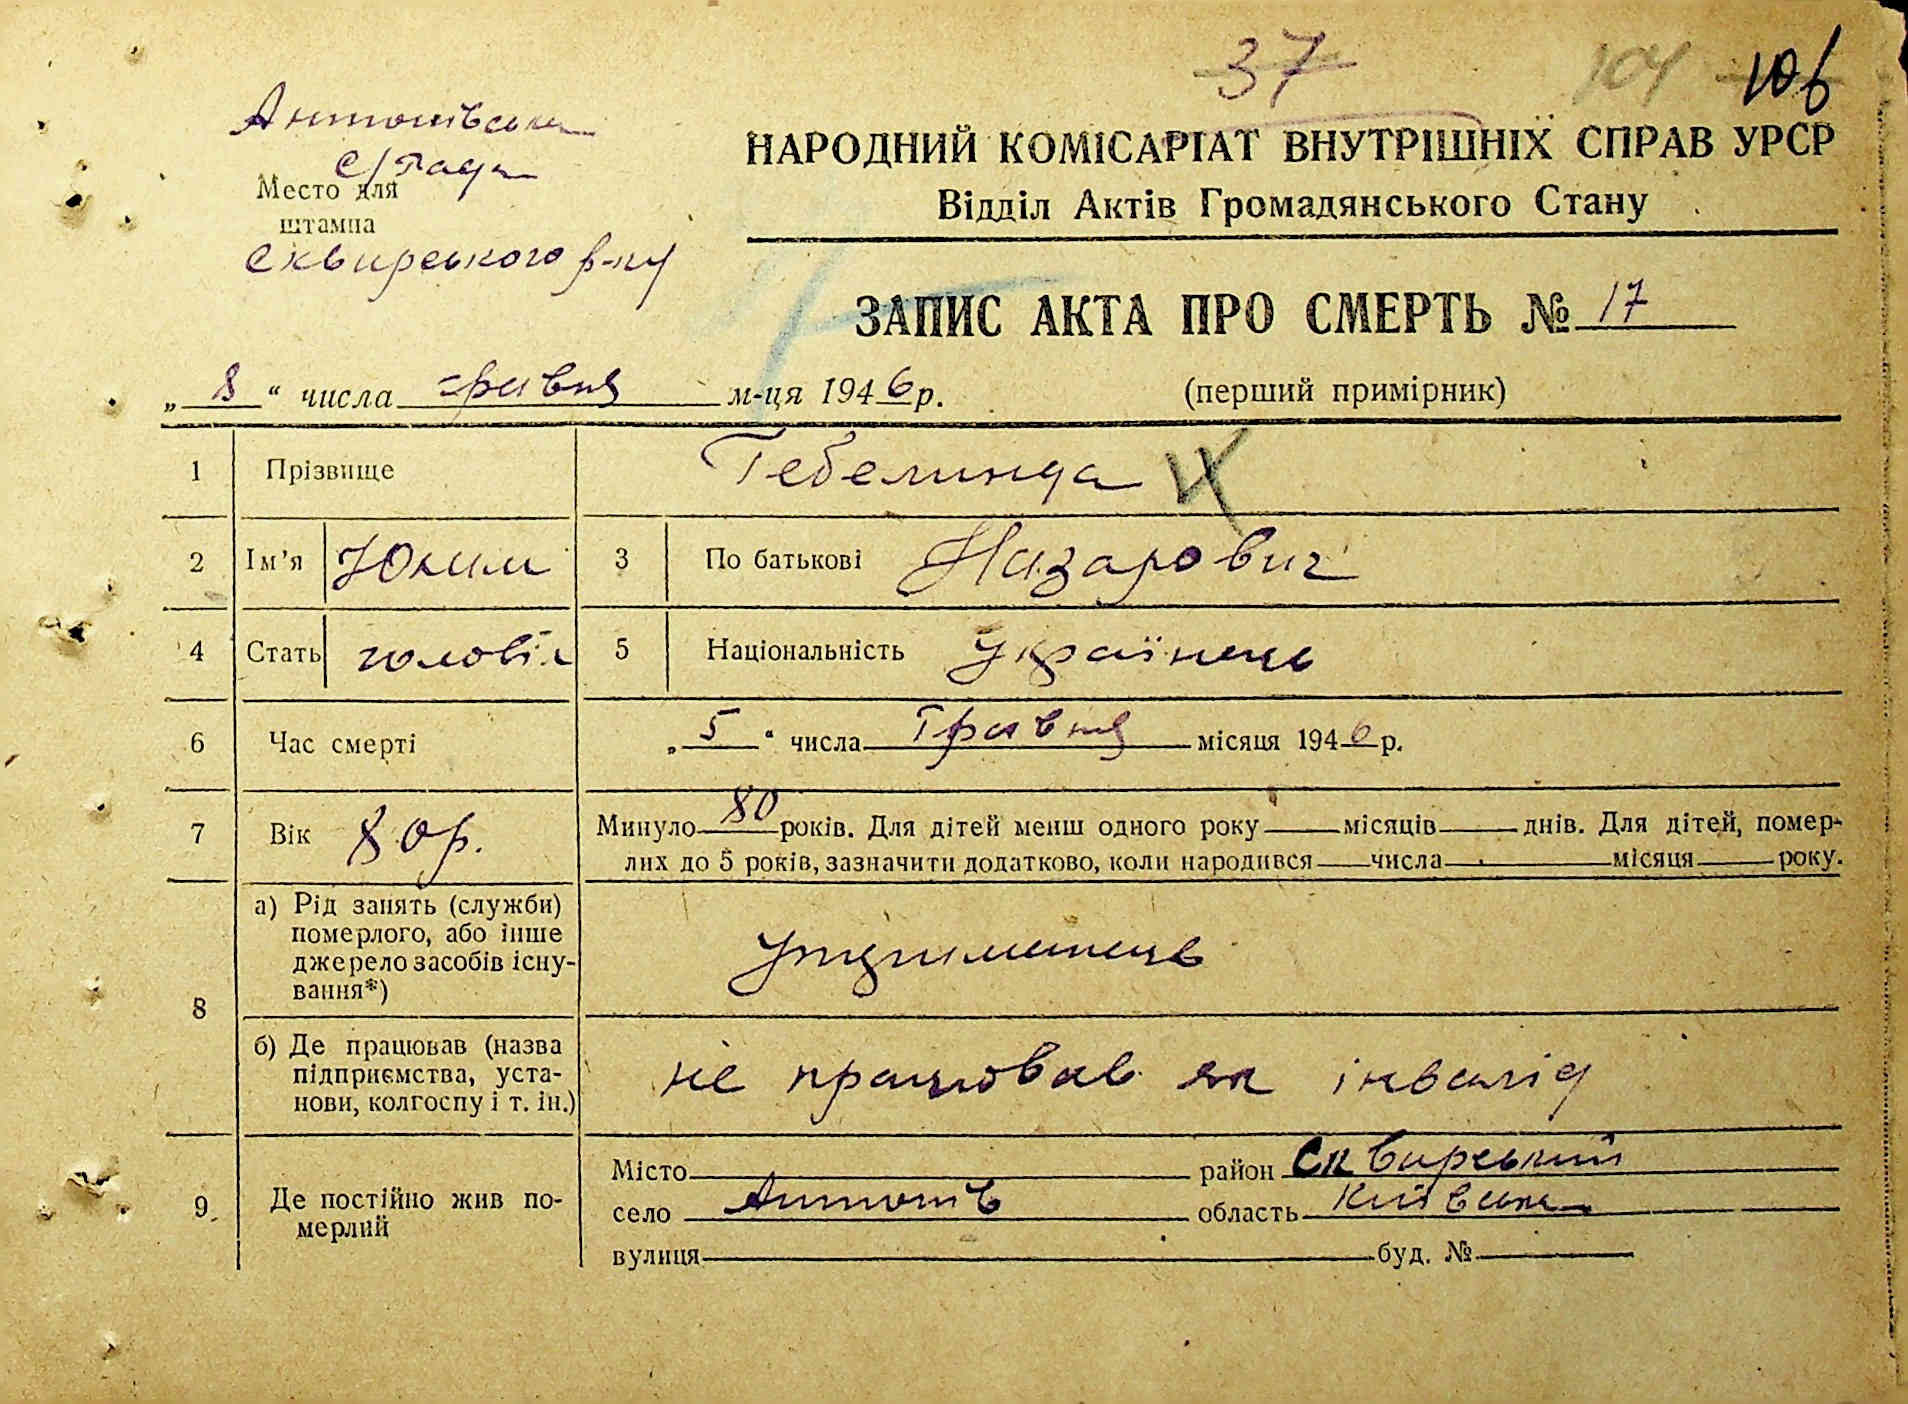 37 104 106
Антонівська
с/Рада
Место для
штампа
Сквирського р-ну
НАРОДНИЙ КОМІСАРІАТ ВНУТРІШНІХ СПРАВ УРСР
Відділ Актів Громадянського Стану
ЗАПИС АКТА ПРО СМЕРТЬ № 17
„ 8 “ числа травня м-ця 1946 р. (перший примірник)
1 Прізвище Гебелинда
2 Ім’я Юхим 3 По батькові Назарович
4 Стать чоловік 5 Національність Українець
6 Час смерті „ 5 “ числа Травня місяця 1946 р.
7 Вік 80 р. Минуло 80 років. Для дітей менш одного року місяців днів. Для дітей, помер-
лих до 5 років, зазначити додатково, коли народився числа місяця року.
8 а) Рід занять (служби)
померлого, або інше
джерело засобів існу-
вання*)
Утриманець
б) Де працював (назва
підприємства, уста-
нови, колгоспу і т. ін.)
не працював як інвалід
9. Де постійно жив по-
мерлий
Місто район Сквирський
село Антонів область Київська
вулиця буд. №